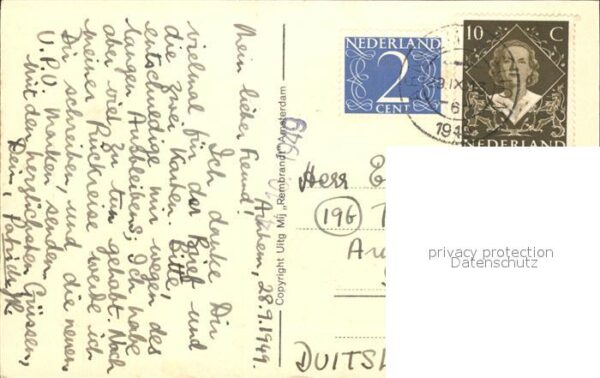 Arnhem, 28.9.1949.
Mein lieber Freund!
Ich danke Dir
vielmal für den Brief und
die zwei Karten. Bitte,
entschuldige mir wegen des
langen Ausbleibens; Ich habe
aber viel zu tun gehabt. Nach
meiner Rückreise werde ich
Dir schreiben, und die neuen
U.P.U. Marken senden.
Mit den herzlichsten Grüssen,
Dein,
Copyright Uitg Mij „Rembrandt" Amsterdam
NEDERLAND
2
CENT
10 C
NEDERLAND
Herr
(196)
DUITS
privacy protection
Datenschutz